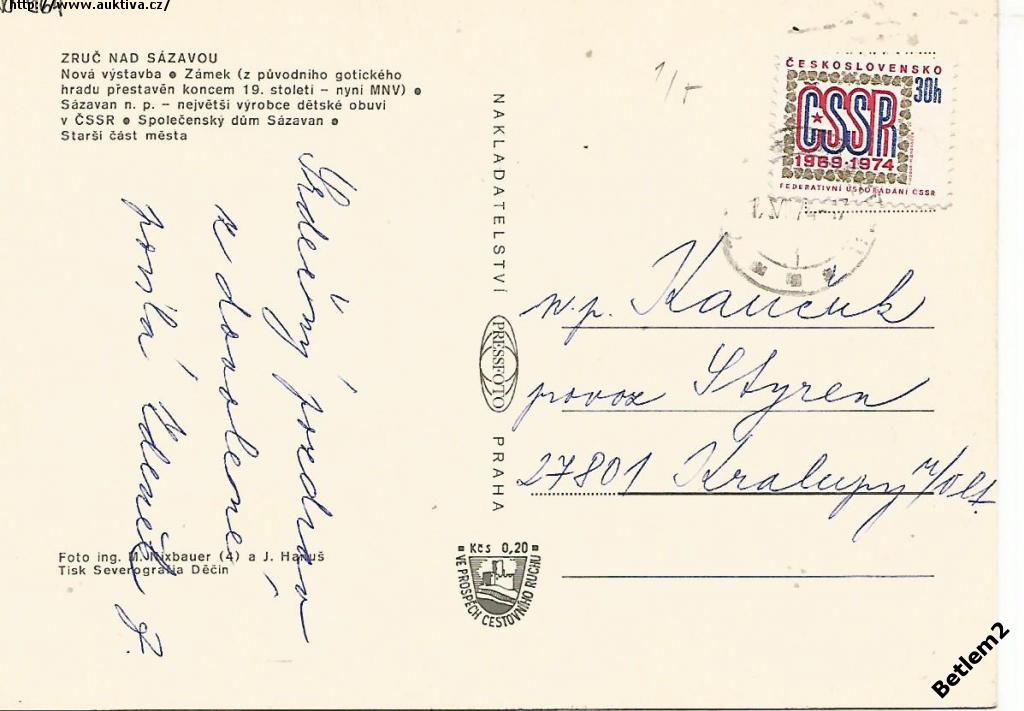 http://www.auktiva.cz/
ZRUČ NAD SÁZAVOU
Nová výstavba ● Zámek (z původního gotického
hradu přestavěn koncem 19. století – nyní MNV) ●
Sázavan n. p. – největší výrobce dětské obuvi
v ČSSR ● Společenský dům Sázavan ●
Starší část města
Srdečný pozdrav
z dovolené
posílá Zdeněk F.
Foto ing. M. Mixbauer (4) a J. Hanuš
Tisk Severografia Děčín
NAKLADATELSTVÍ
PRESSFOTO
PRAHA
Kčs 0,20
VE PROSPĚCH CESTOVNÍHO RUCHU
1/5
ČESKOSLOVENSKO
30h
ČSSR
1969·1974
FEDERATIVNÍ USPOŘÁDÁNÍ ČSSR
n.p. Kaučuk
provoz Styren
27801 Kralupy n/Vlt.
Betlem2